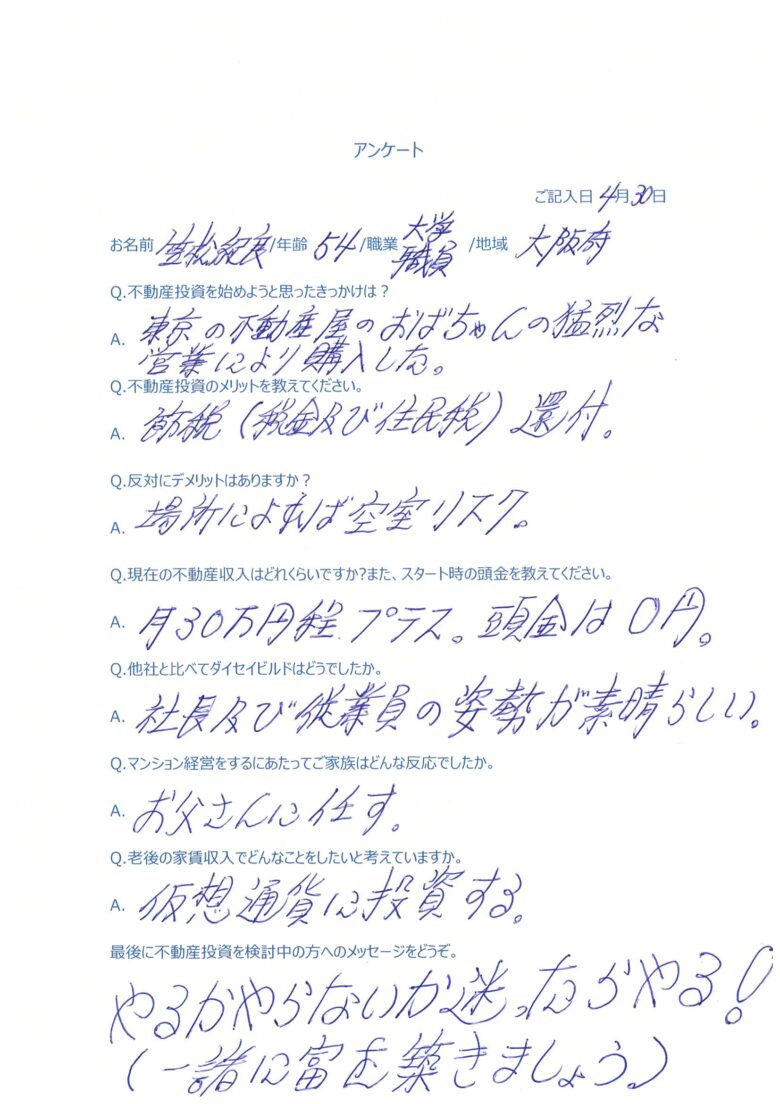 アンケート
ご記入日 4月30日
お名前 笠松紀度/年齢 54 /職業 大学職員 /地域 大阪府
Q.不動産投資を始めようと思ったきっかけは？
A. 東京の不動産屋のおばちゃんの猛烈な
営業により購入した。
Q.不動産投資のメリットを教えてください。
A. 節税（税金及び住民税）還付。
Q.反対にデメリットはありますか？
A. 場所によれば空室リスク。
Q.現在の不動産収入はどれくらいですか?また、スタート時の頭金を教えてください。
A. 月30万円程プラス。頭金は0円。
Q.他社と比べてダイセイビルドはどうでしたか。
A. 社長及び従業員の姿勢が素晴らしい。
Q.マンション経営をするにあたってご家族はどんな反応でしたか。
A. お父さんに任す。
Q.老後の家賃収入でどんなことをしたいと考えていますか。
A. 仮想通貨に投資する。
最後に不動産投資を検討中の方へのメッセージをどうぞ。
やるかやらないか迷ったらやる！
（一諸に富を築きましょう。）